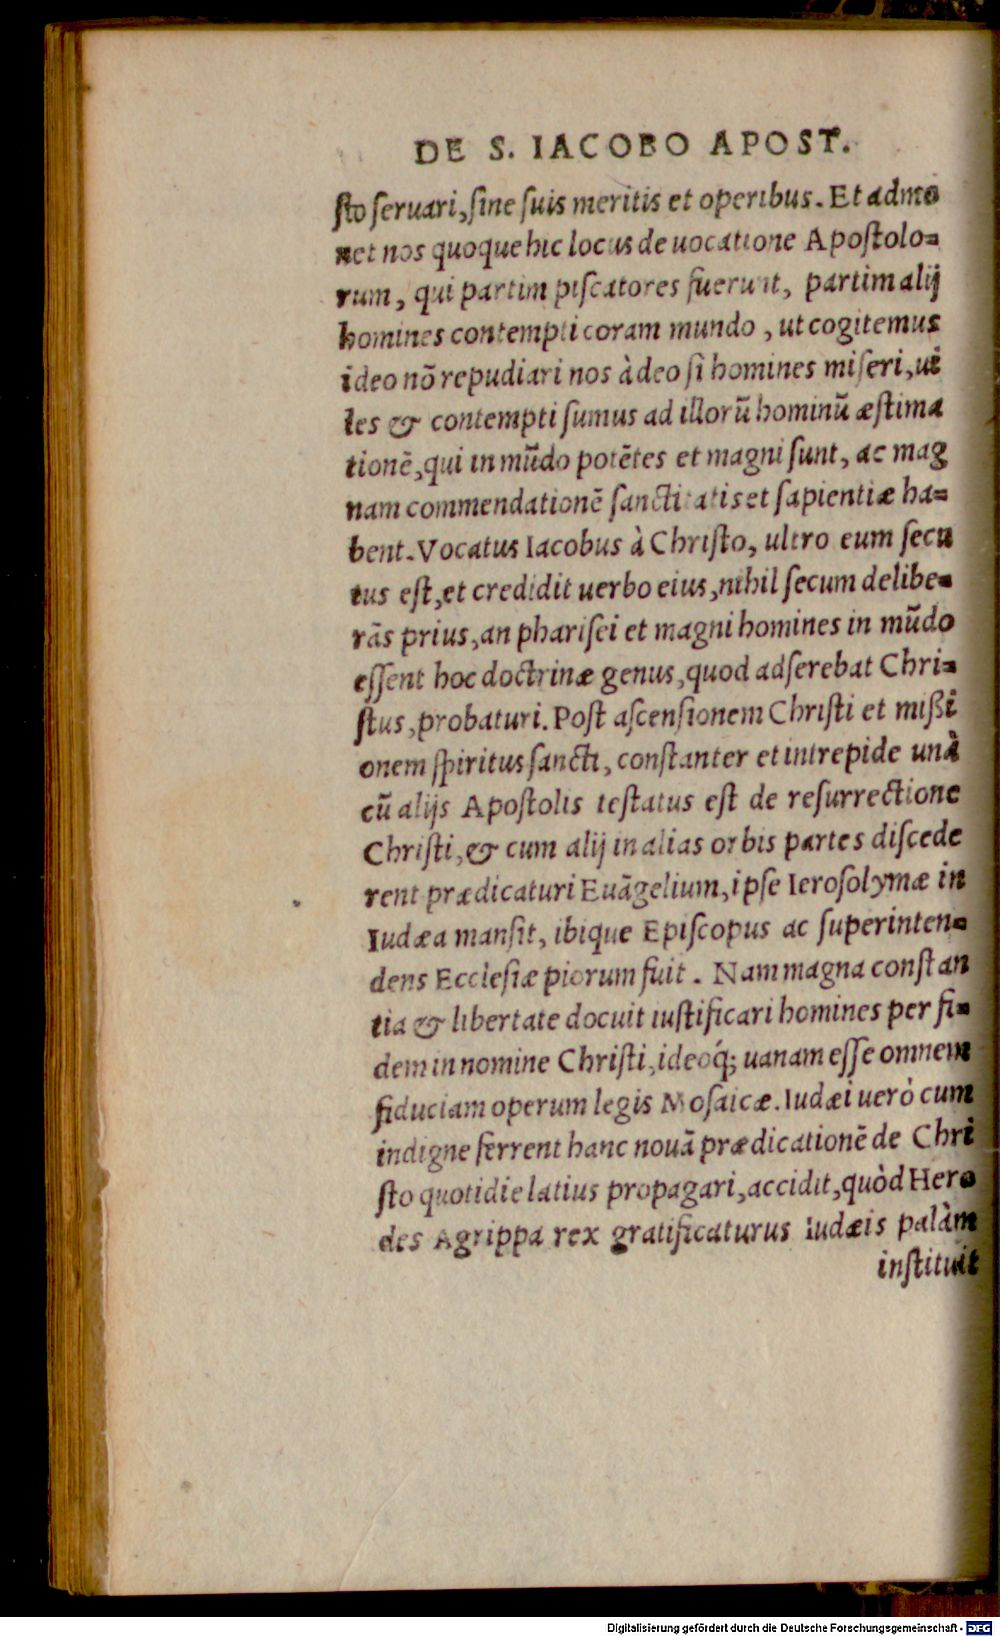 DE S. IACOBO APOST.
sto seruari, sine suis meritis et operibus. Et admo
net nos quoque hic locus de uocatione Apostolo=
rum, qui partim piscatores fuerunt, partim alij
homines contempti coram mundo, ut cogitemus
ideo nō repudiari nos àdeo si homines miseri, ui
les & contempti sumus ad illorū hominū æstima
tionē, qui in mūdo potētes et magni sunt, ac mag
nam commendationē sanctitatis et sapientiæ ha=
bent. Vocatus Iacobus à Christo, ultro eum secu
tus est, et credidit uerbo eius, nihil secum delibe=
rās prius, an pharisei et magni homines in mūdo
essent hoc doctrinæ genus, quod adserebat Chri=
stus, probaturi. Post ascensionem Christi et mißi
onem spiritus sancti, constanter et intrepide unà
cū alijs Apostolis testatus est de resurrectione
Christi, & cum alij in alias orbis partes discede
rent prædicaturi Euāgelium, ipse Ierosolymæ in
Iudæa mansit, ibique Episcopus ac superinten=
dens Ecclesiæ piorum fuit. Nam magna constan
tia & libertate docuit iustificari homines per fi=
dem in nomine Christi, ideoq́; uanam esse omnem
fiduciam operum legis Mosaicæ. Iudæi uerò cum
indigne ferrent hanc nouā prædicationē de Chri
sto quotidie latius propagari, accidit, quòd Hero
des Agrippa rex gratificaturus Iudæis palàm
instituit
Digitalisierung gefördert durch die Deutsche Forschungsgemeinschaft - DFG